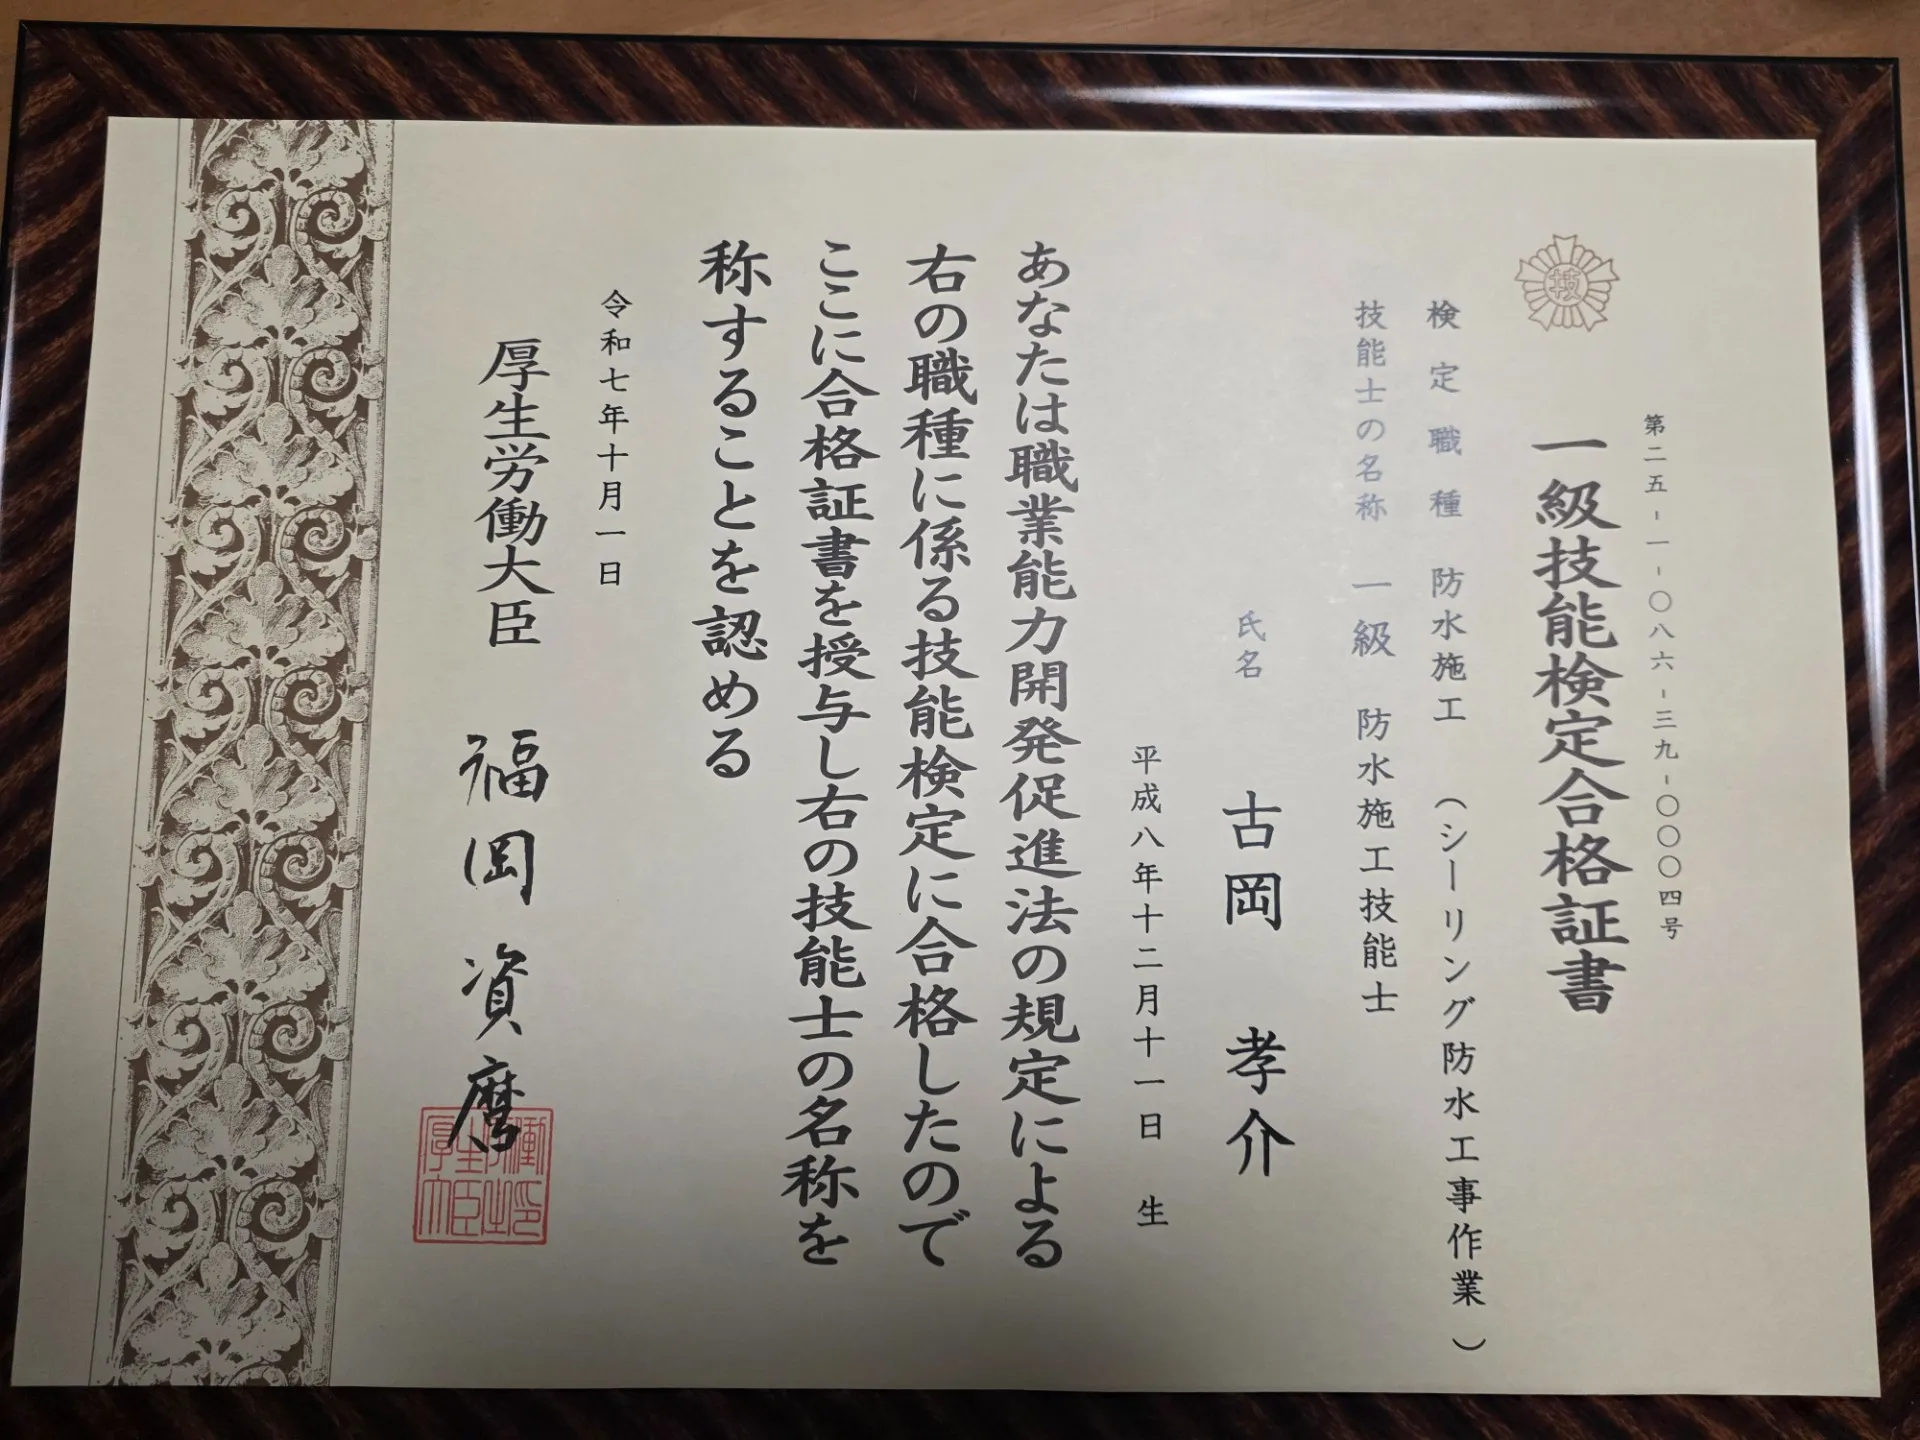 第二五-一-〇八六-三九-〇〇〇四号
技
一級技能検定合格証書
検定職種 防水施工 (シーリング防水工事作業)
技能士の名称 一級 防水施工技能士
氏名 古岡 孝介
平成八年十二月十一日 生
あなたは職業能力開発促進法の規定による
右の職種に係る技能検定に合格したので
ここに合格証書を授与し右の技能士の名称を
称することを認める
令和七年十月一日
厚生労働大臣 福岡資麿